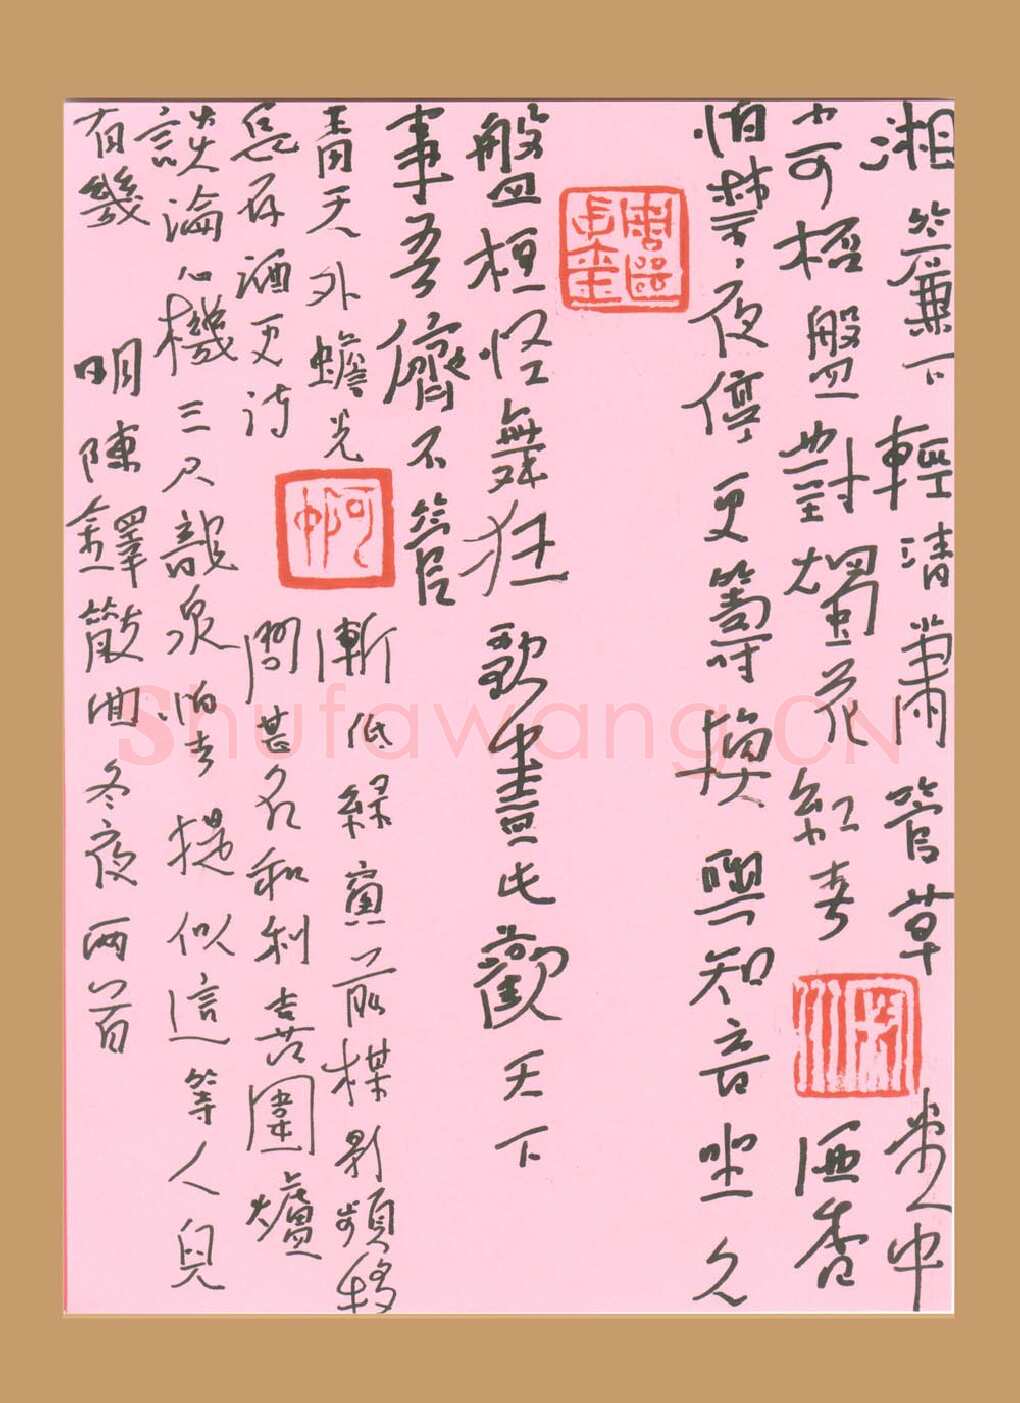 湘簾下輕清蕭管草堂中
小可杯盤對燭花紅春酒香
怕禁夜停更籌換與知音坐久
盤桓怪舞狂歌盡此歡天下
事吾儕不管
青天外蟾光漸低綠窗前梅影頻移
存酒更詩問甚名和利去苦圍爐
談論心機三尺龍泉怕去提似這等人兒
有幾 明陳鐸散曲冬夜兩首
Shufawang.CN